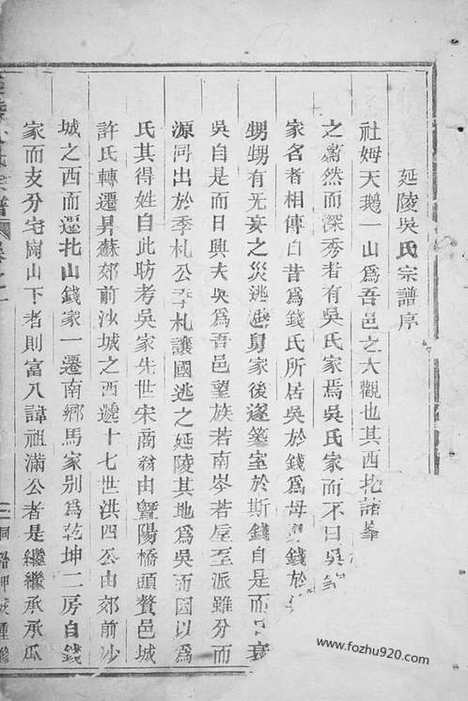 延陵吳氏宗譜序
社姆天鵝一山爲吾邑之大觀也其西北諸峯
之蔚然而深秀者有吳氏家焉吳氏家而不曰吳
家名者相傳自昔爲錢氏所居吳於錢爲母舅錢於
甥甥有无妄之災逃避舅家後遂築室於斯錢自是而日衰
吳自是而日興夫吳爲吾邑望族若南岑若屋至派雖分而
源同出於季札公季札讓國逃之延陵其地爲吳而因以爲
氏其得姓自此昉考吳家先世宋商翁由暨陽橋頭贅邑城
許氏轉遷昇蘇郊前沙城之西遞十七世洪四公由郊前沙
城之西而遷北山錢家一遷南鄉馬家别爲乾坤二房自錢
家而支分宅崗山下者則富八諱祖滿公者是繼繼承承瓜
www.fozhu920.com